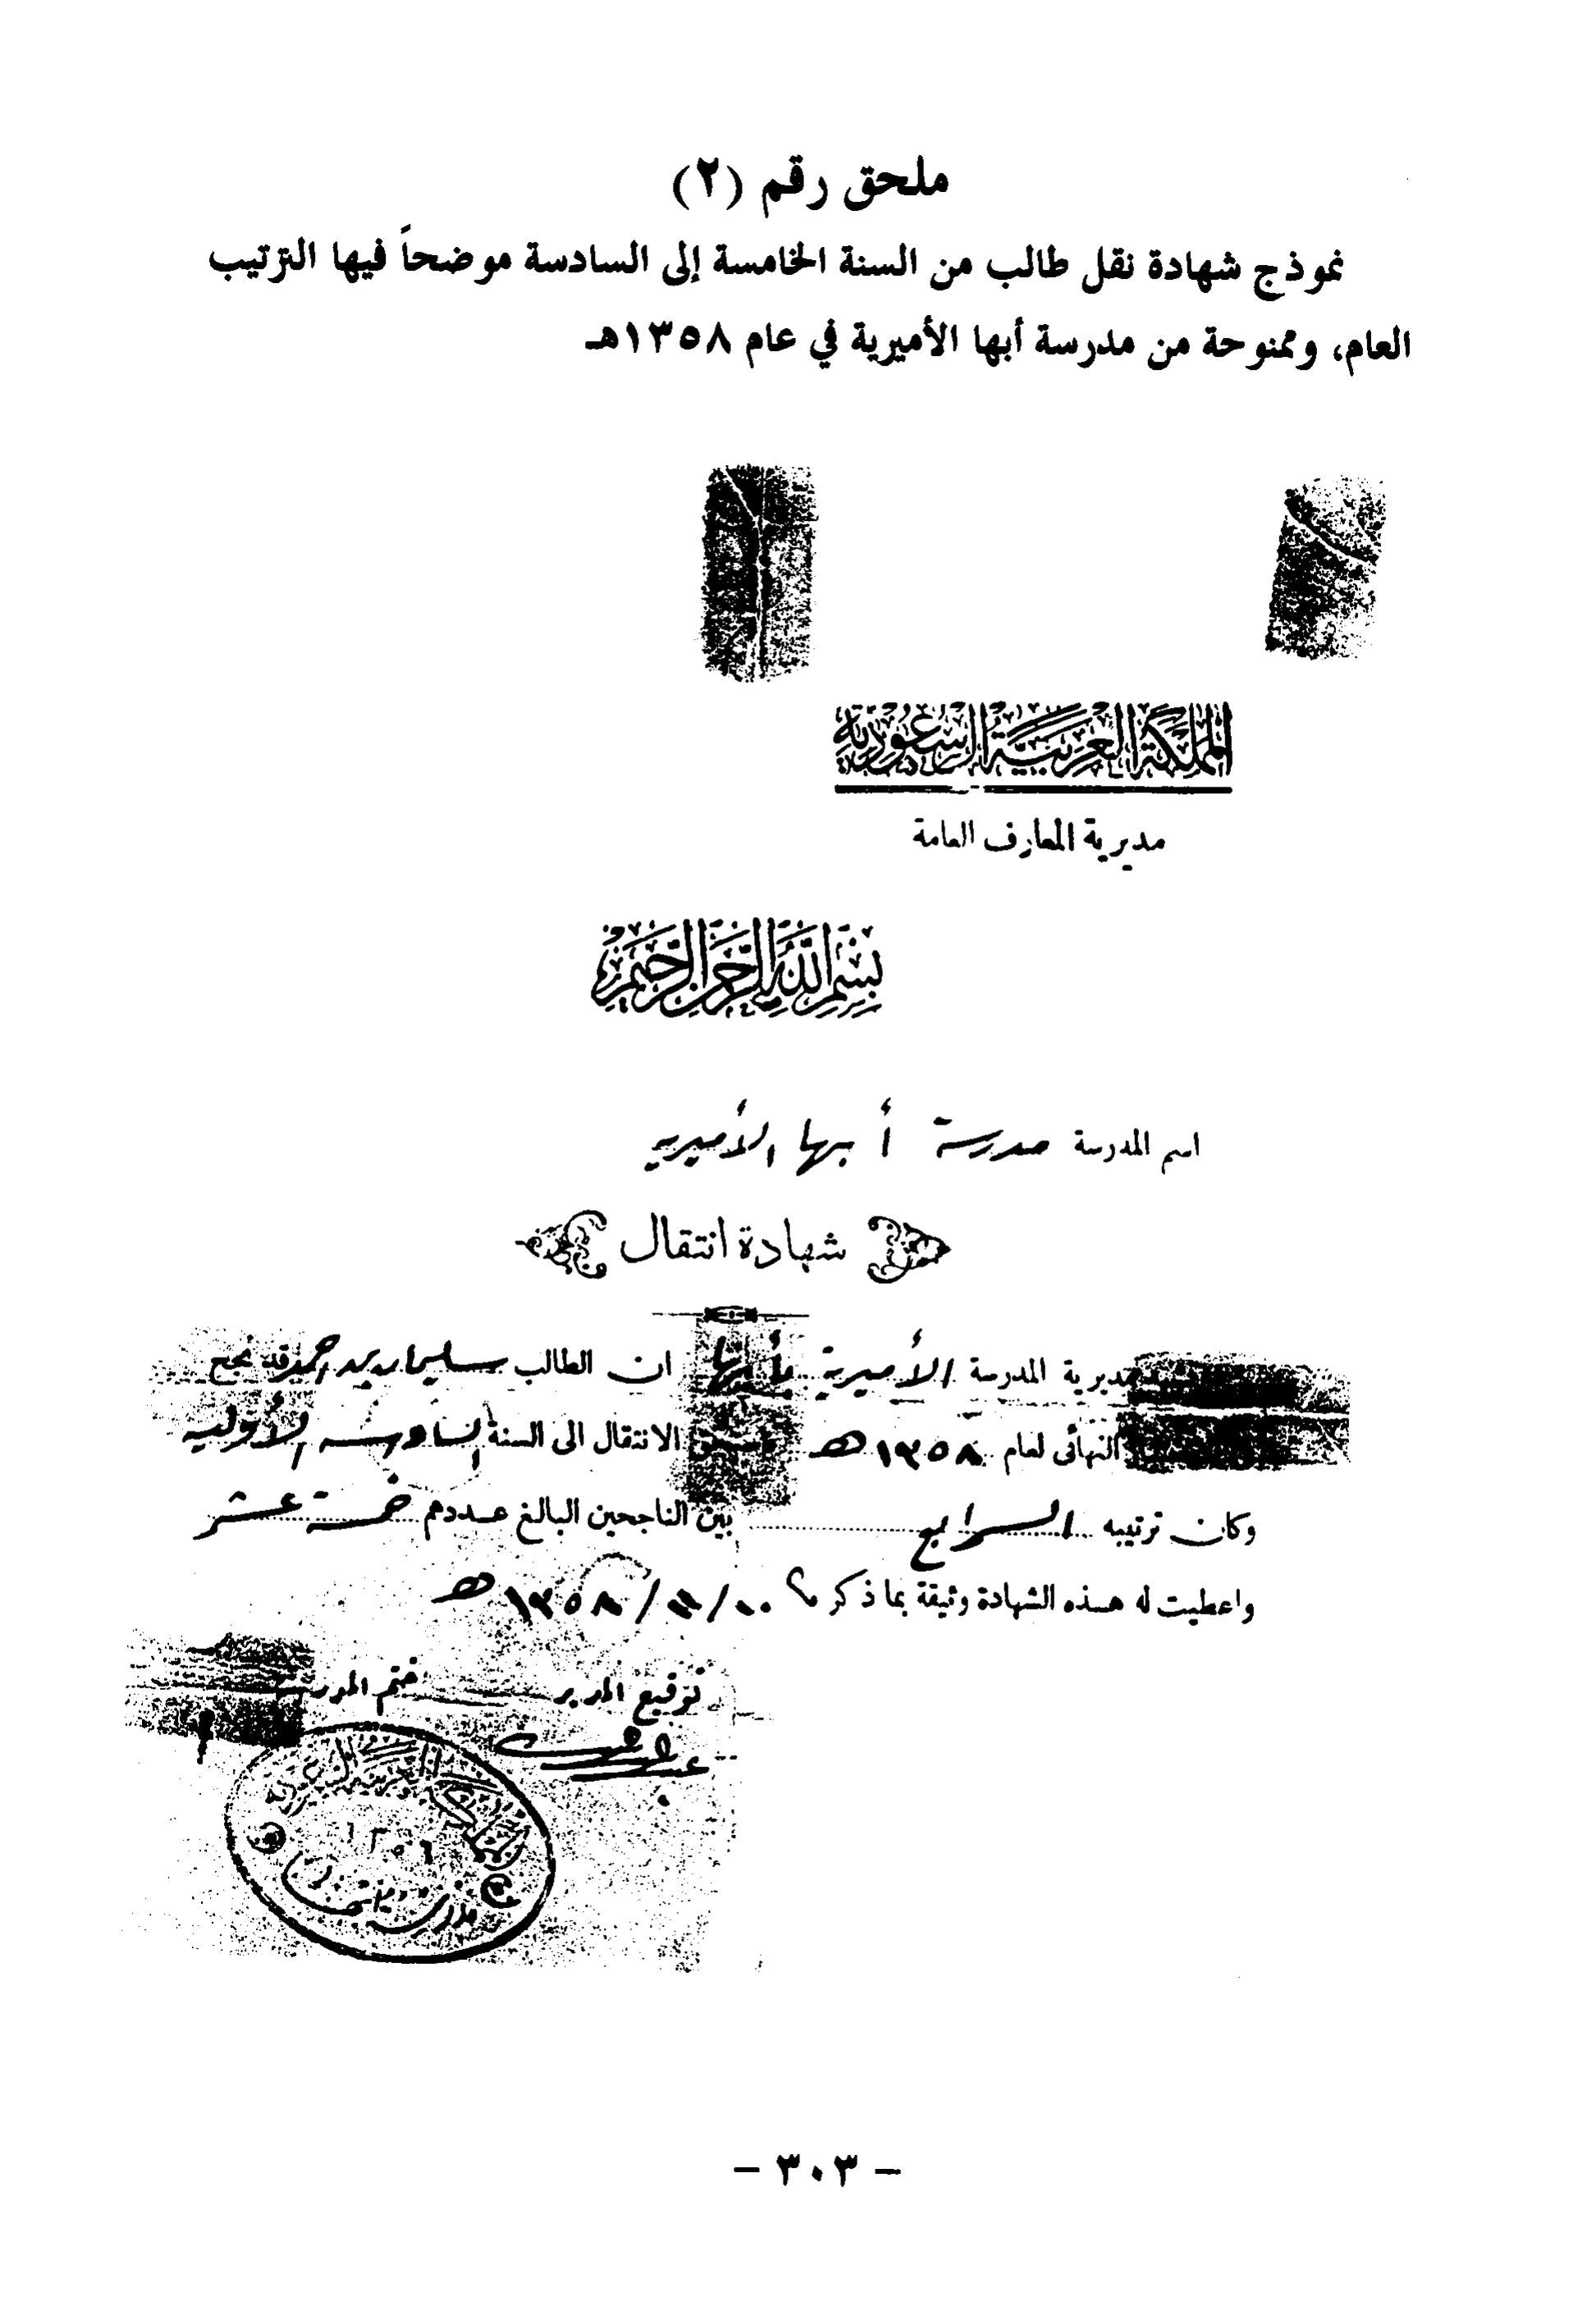 ملحق رقم (٢)
نموذج شهادة نقل طالب من السنة الخامسة إلى السادسة موضحاً فيها الترتيب
العام، وممنوحة من مدرسة أبها الأميرية في عام ١٣٥٨هـ
المملكة العربية السعودية
مديرية المعارف العامة
بسم الله الرحمن الرحيم
اسم المدرسة مدرسة أبها الأميرية
شهادة انتقال
مديرية المدرسة الأميرية بأبها ان الطالب سليمان بن احمد قد نجح
النهائى لعام ١٣٥٨ هـ الانتقال الى السنة السادسه الأوليه
وكان ترتيبه الرابع بين الناجحين البالغ عددهم خمسة عشر
واعطيت له هذه الشهادة وثيقة بما ذكر ١٣٥٨ هـ
توقيع المدير ختم المدرسة
المملكة العربية السعودية
١٣٥٦
مدرسة
- ٣٠٣ -